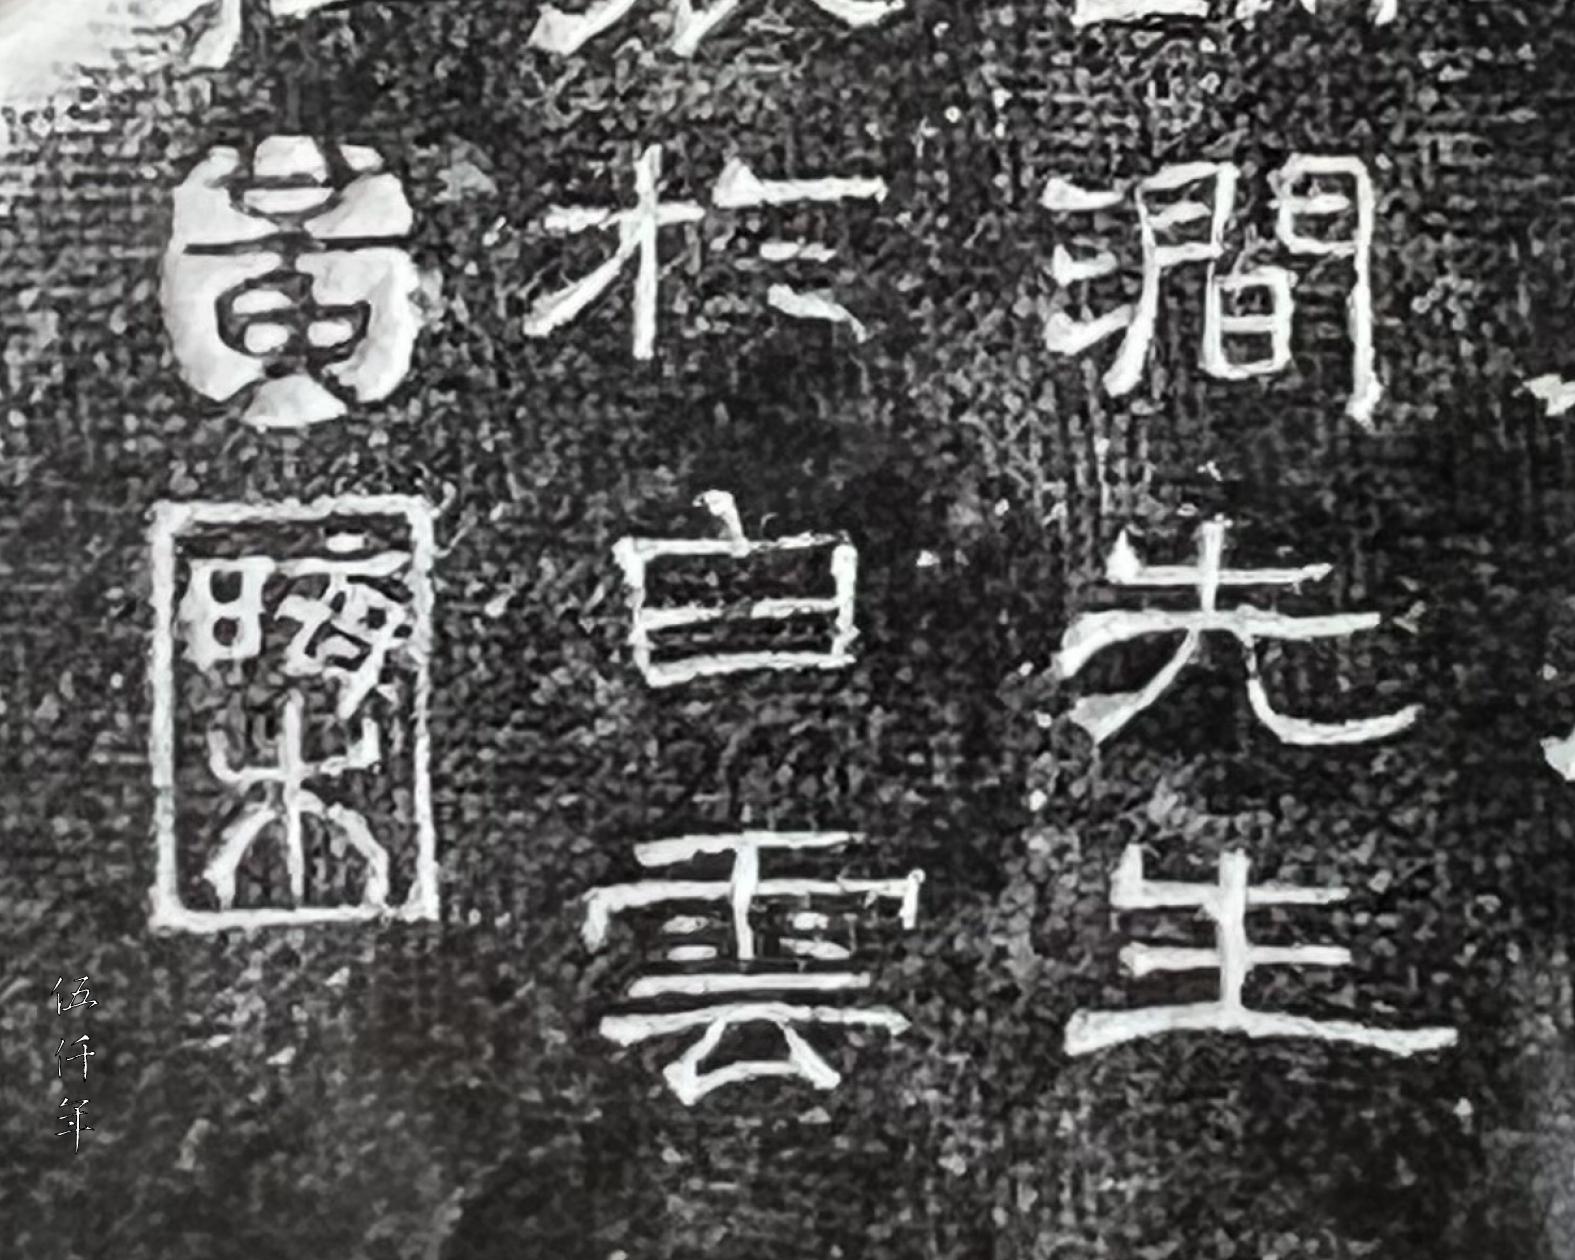 澗先生
於白雲
黃
晦木
伍仟年